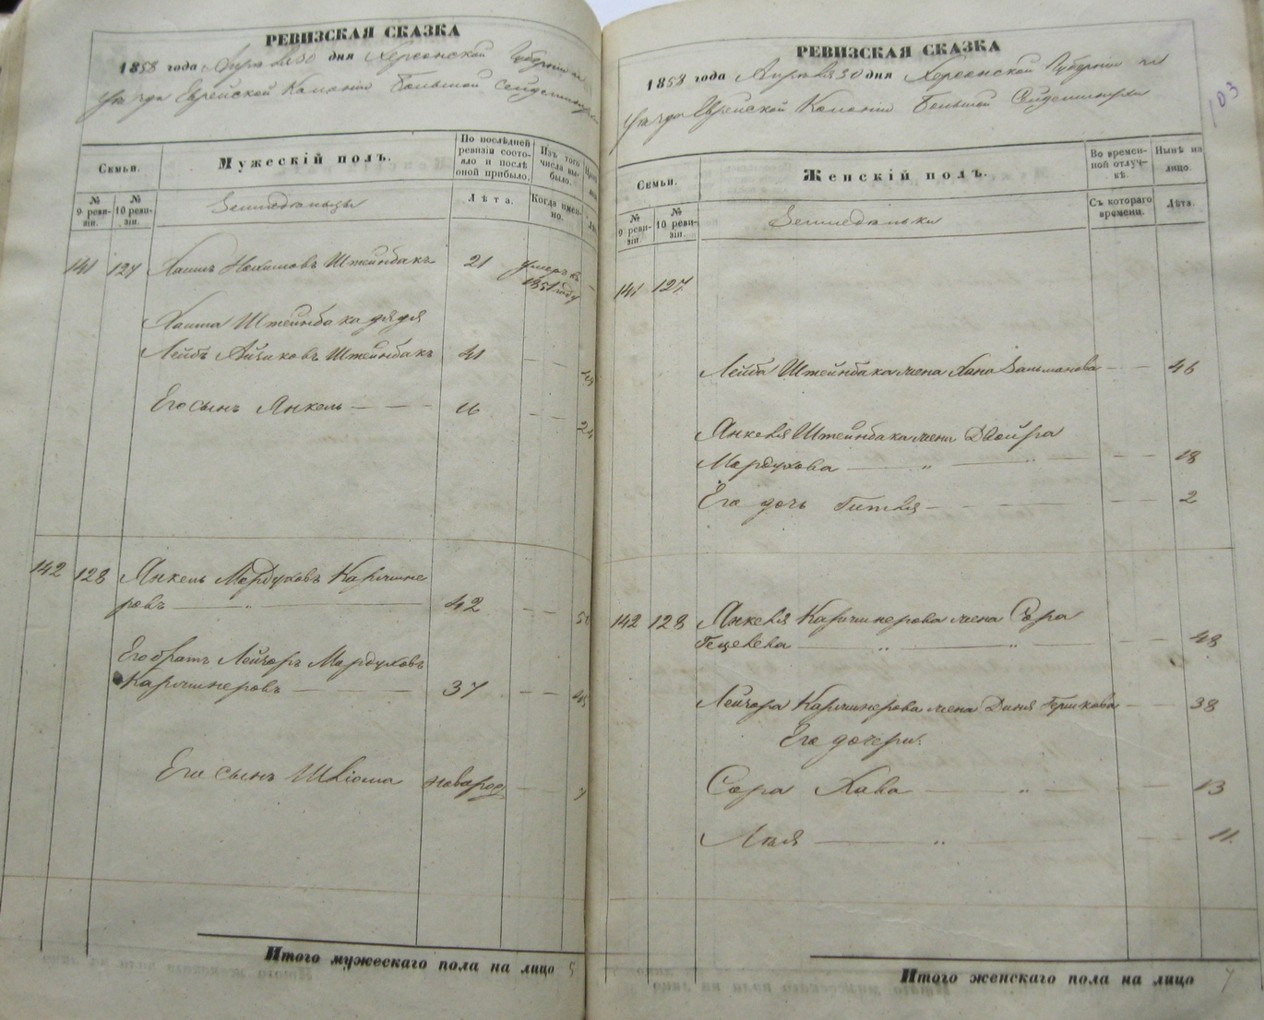 РЕВИЗСКАЯ СКАЗКА
1858 года Апреля 30 дня Херсонской Губернии
уезда Еврейской Колонии Большой Сейдеминухи
Семьи.
Мужескій полъ.
По послѣдней ревизіи состояло и послѣ оной прибыло.
Изъ того числа выбыло.
№ 9 ревизіи.
№ 10 ревизіи.
Земледѣльцы
Лѣта.
Когда именно.
141 127 Хаимъ Нохимовъ Штейнбакъ 21 умеръ въ 1851 году
Хаима Штейнбака дядя
Лейбъ Айзиковъ Штейнбакъ 41
Его сынъ Янкель 16 24
142 128 Янкель Мордуховъ Каршене
ровъ 42
Его братъ Лейзоръ Мордуховъ
Каршенеровъ 37 45
Его сынъ Шліома новород 7
Итого мужескаго пола на лицо 5
РЕВИЗСКАЯ СКАЗКА
103
1858 года Апреля 30 дня Херсонской Губернии
уезда Еврейской Колоніи Большой Сейдеминухи
Семьи.
Женскій полъ.
Во временной отлучкѣ.
Нынѣ на лицо.
№ 9 ревизіи.
№ 10 ревизіи.
Земледѣльки
Съ котораго времени.
Лѣта.
141 127
Лейба Штейнбака жена Хана Зальманова 46
Янкеля Штейнбака жена Двойра
Мордухова 18
Его дочь Гитля 2
142 128 Янкеля Каршенерова жена Сора
Гецелева 48
Лейзора Каршенерова жена Диня Гершкова 38
Его дочери:
Сора Хава 13
Лея 11
Итого женскаго пола на лицо 7